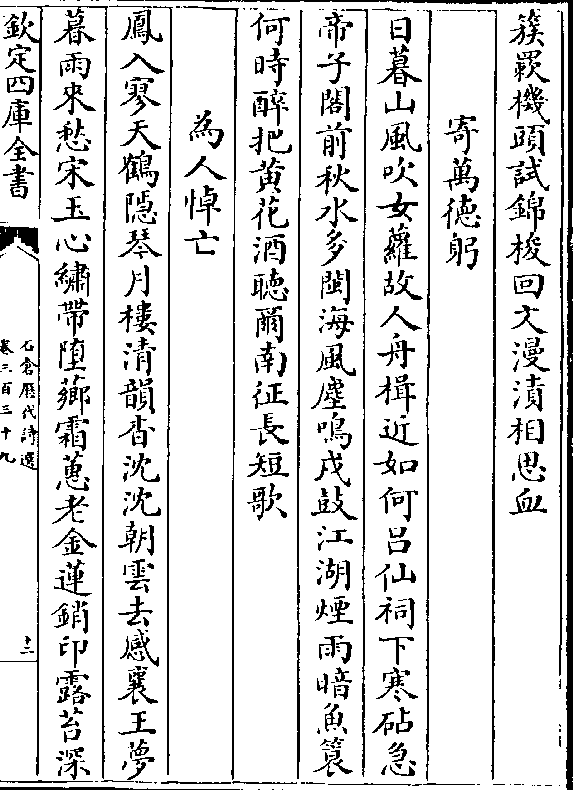 簇蹙機頭試錦梭回文漫漬相思血
寄萬德躬
日暮山風吹女蘿故人舟楫近如何呂仙祠下寒砧急
帝子閣前秋水多閩海風塵鳴戍鼓江湖煙雨暗魚蓑
何時醉把黄花酒聴爾南征長短歌
為人悼亡
鳳入寥天鶴隠琴月樓清韻杳沈沈朝雲去感襄王夢
暮雨來愁宋玉心繡帶堕薌霜蕙老金蓮銷印露苔深
欽定四庫全書
石倉歴代詩選
卷三百三十九
十二